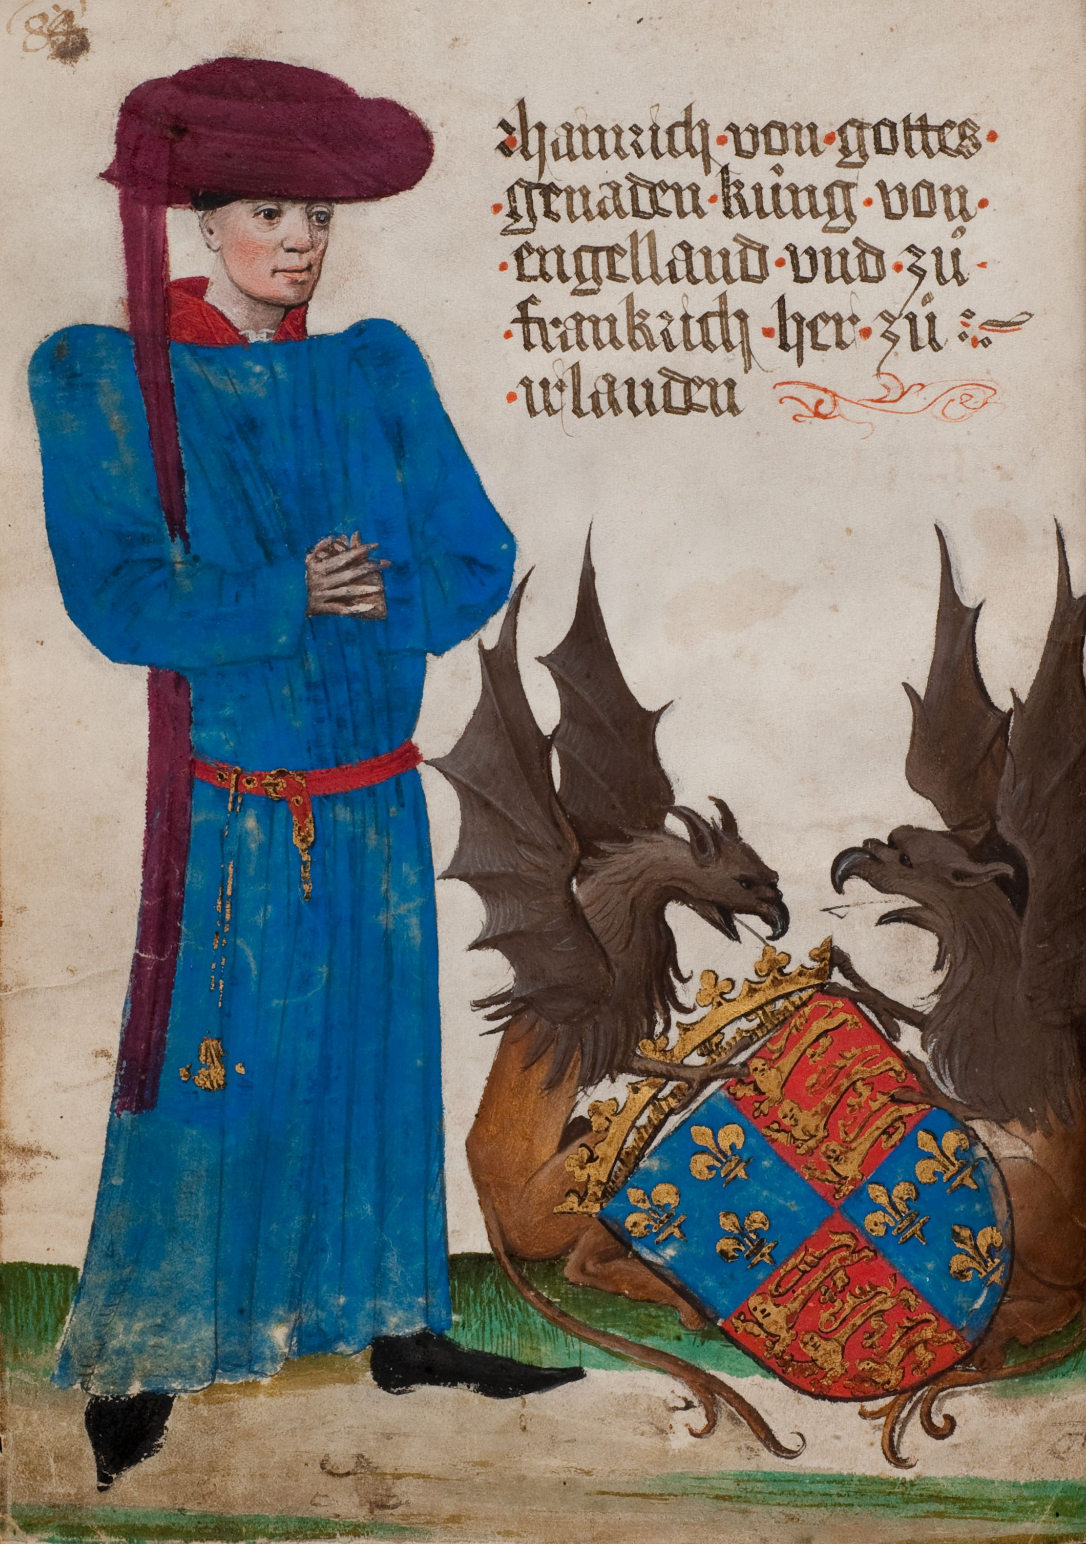 84
hainrich · von · gottes ·
· genaden · kúng · von ·
· engelland · vnd · zů ·
· frankrich · her · zů
· irlanden